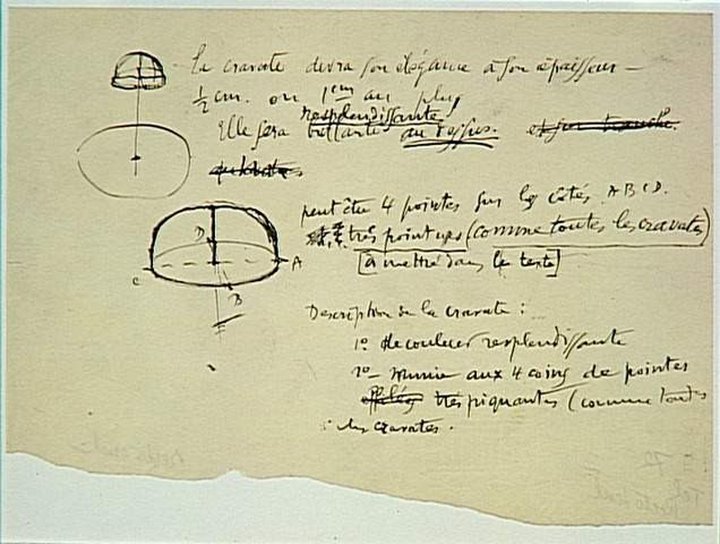 La cravate devra son élégance à son épaisseur —
½ cm. ou 1cm au plus
resplendissante
Elle sera brillante au dessus. et sur tranche.
peut être 4 pointes sur les côtés. A B C D.
très pointues (comme toutes les cravates)
[à mettre dans le texte]
D
A
C
B
F
Description de la cravate :
1º de couleur resplendissante
2º — munie aux 4 coins de pointes
effilées très piquantes (comme toutes
les cravates.